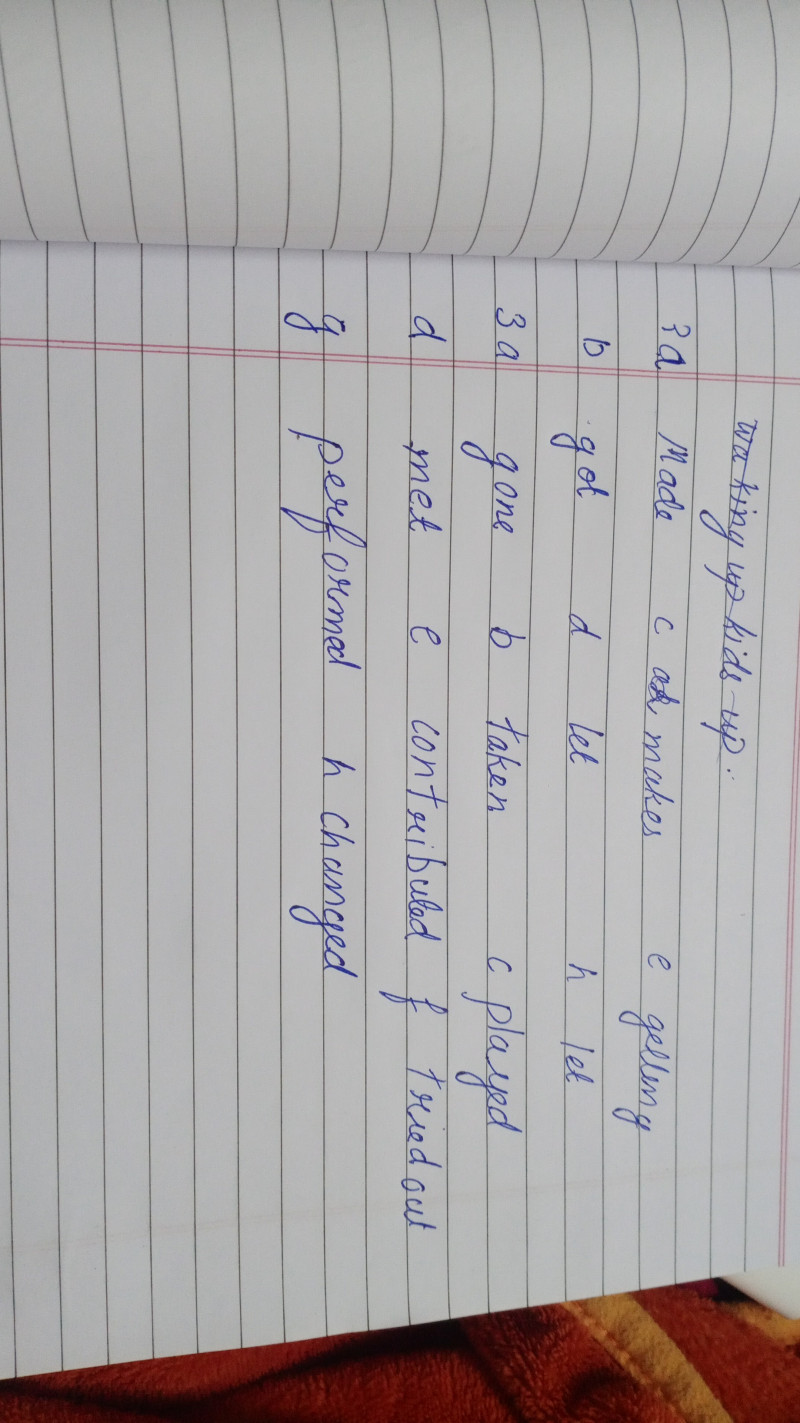 waking up kids up.
?a Made c makes e getting
b got d let h let
3a gone b taken c played
d met e contributed f tried out
g performed h changed